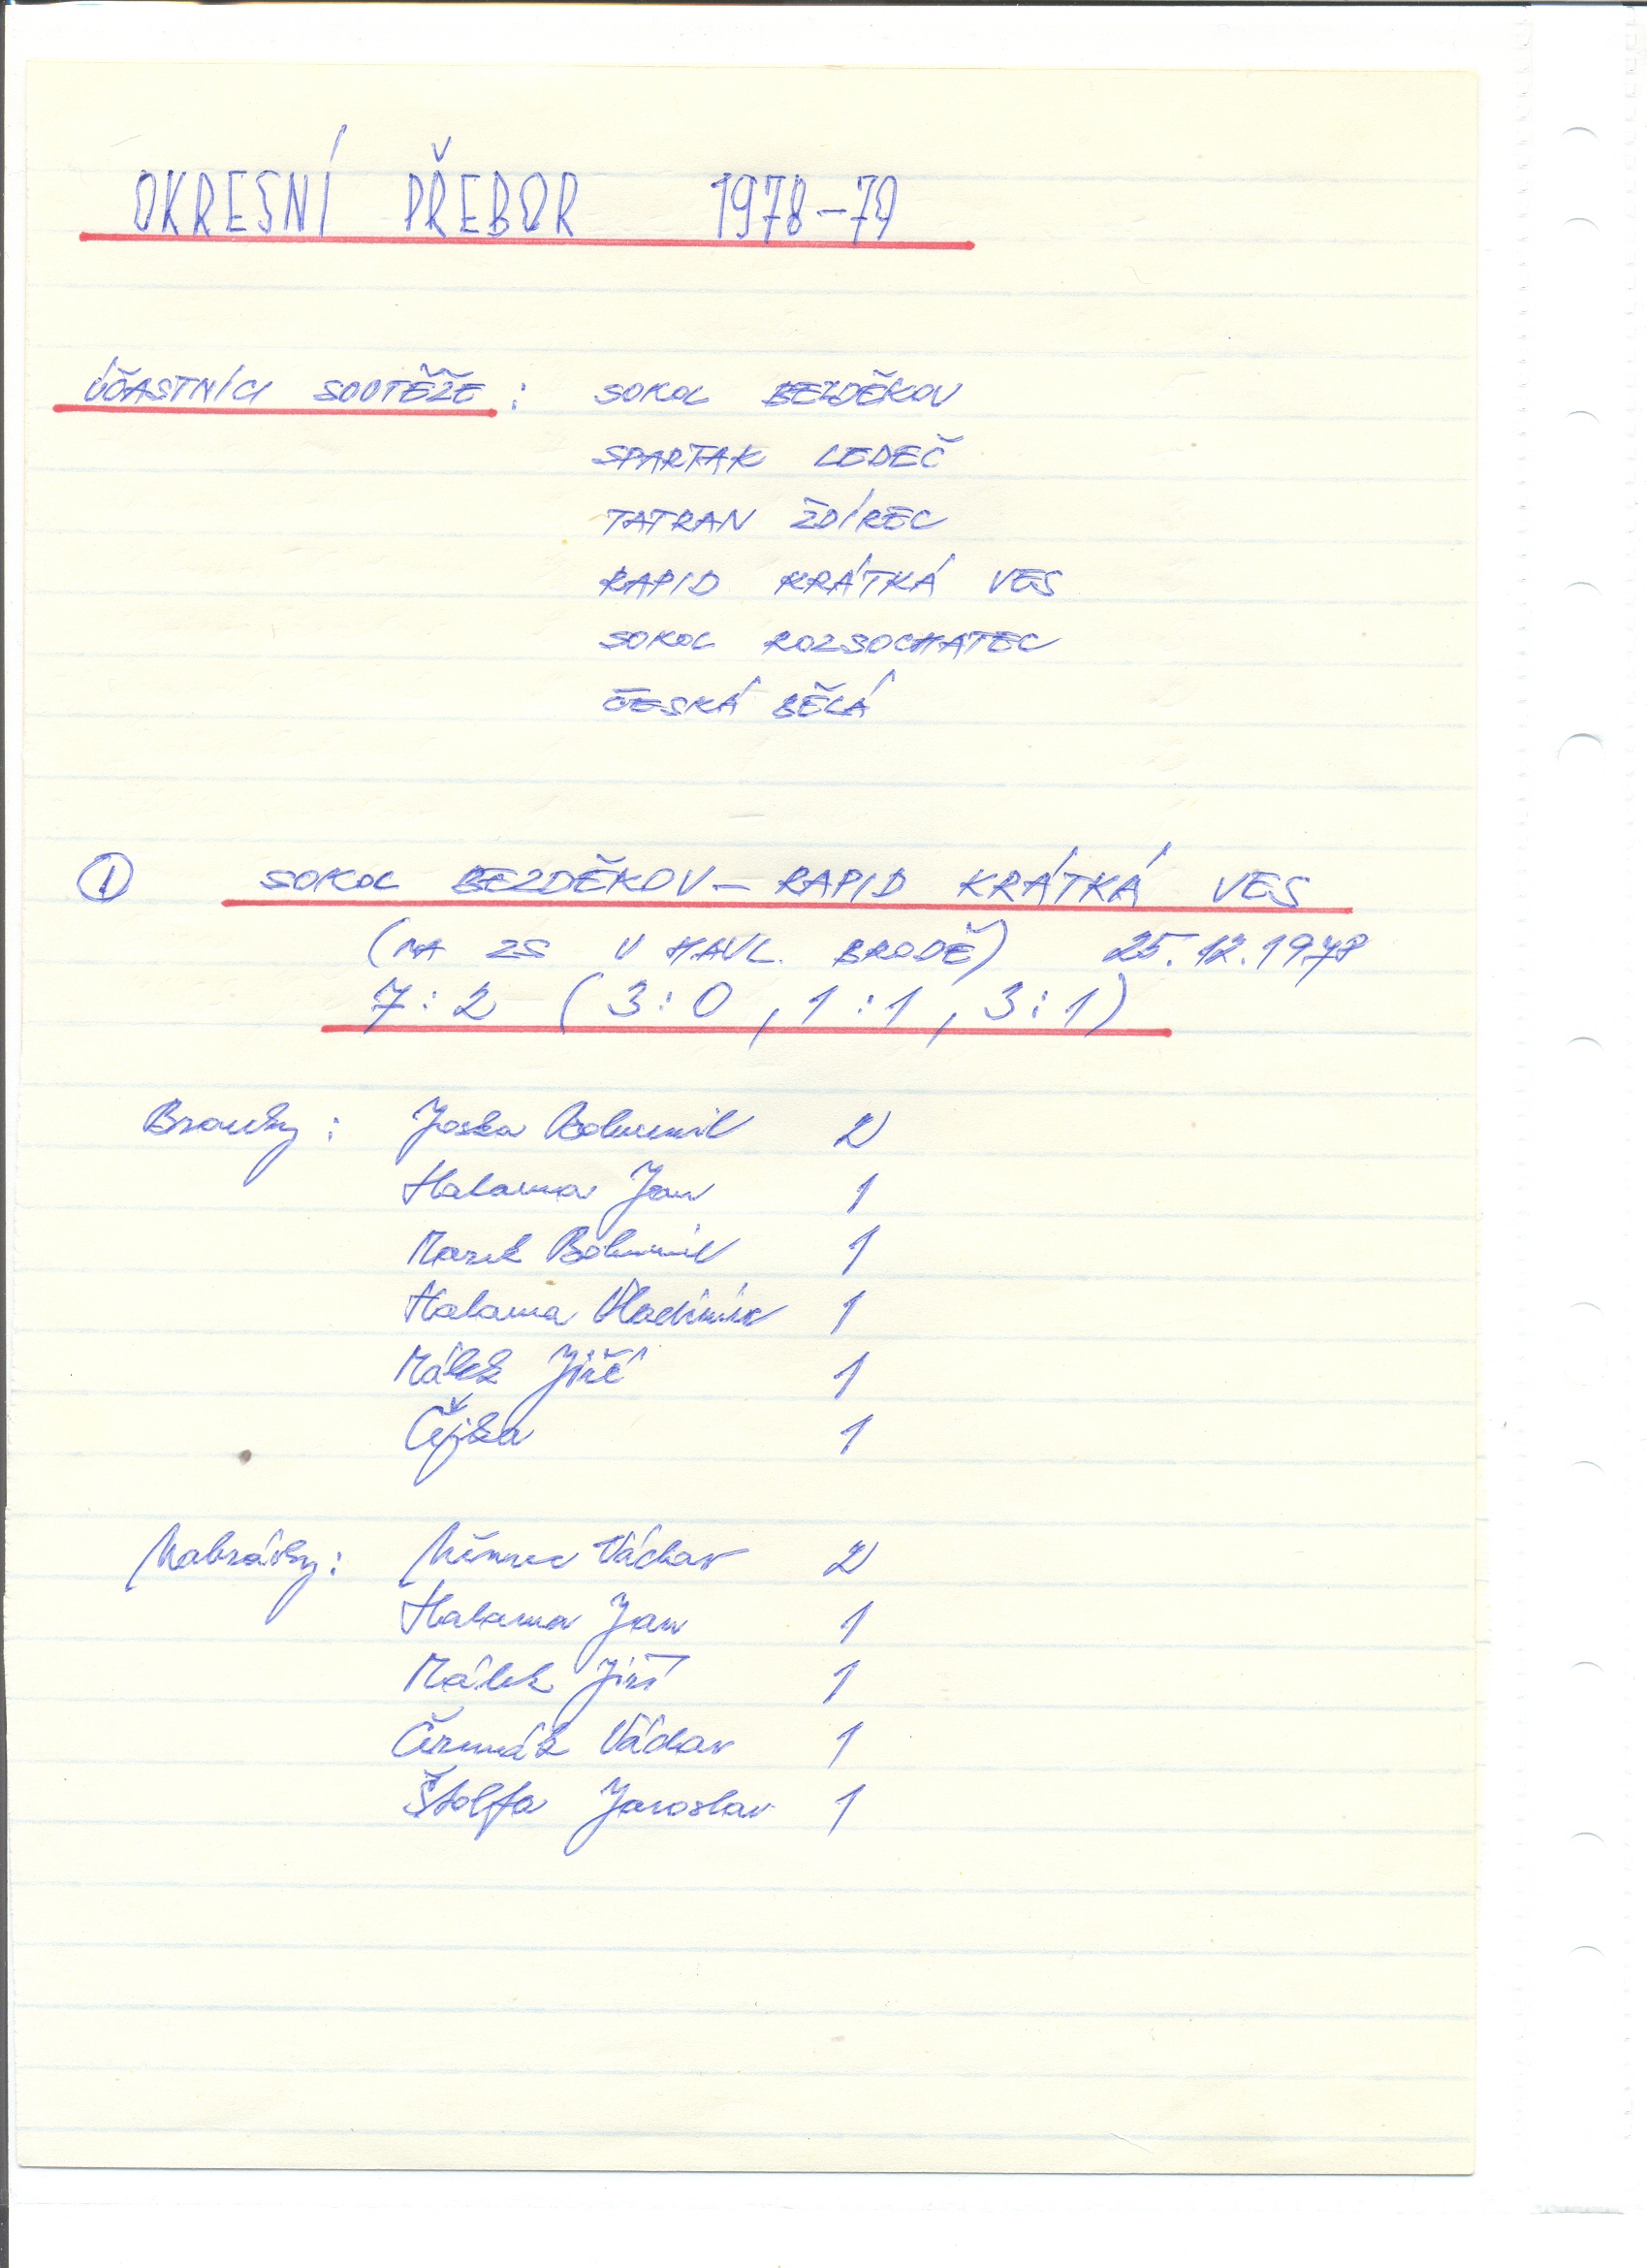 OKRESNÍ PŘEBOR 1978-79
ÚČASTNÍCI SOUTĚŽE : SOKOL BEZDĚKOV
SPARTAK LEDEČ
TATRAN ŽDÍREC
RAPID KRÁTKÁ VES
SOKOL ROZSOCHATEC
ČESKÁ BĚLÁ
1 SOKOL BEZDĚKOV - RAPID KRÁTKÁ VES
(NA ZS V HAVL. BRODĚ) 25.12.1978
7:2 (3:0, 1:1, 3:1)
Branky : Joska Bohumil 2
Halama Jan 1
Marek Bohumil 1
Halama Vladimír 1
Málek Jiří 1
Čejka 1
Nahrávky : Němec Václav 2
Halama Jan 1
Málek Jiří 1
Čermák Václav 1
Štolfa Jaroslav 1